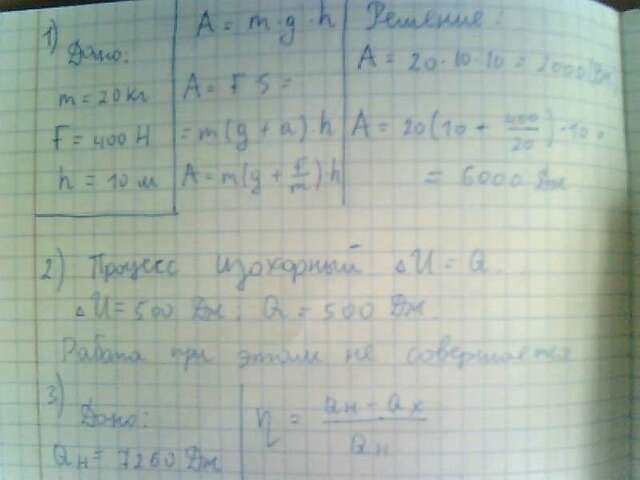 1)
Дано:
m = 20 кг
F = 400 Н
h = 10 м
A = m · g · h
A = F S =
= m(g + a) · h
A = m(g + F/m) · h
Решение:
A = 20 · 10 · 10 = 2000 Дж
A = 20(10 + 400/20) · 10 =
= 6000 Дж
2) Процесс изохорный ΔU = Q.
ΔU = 500 Дж; Q = 500 Дж.
Работа при этом не совершается
3)
Дано:
Qн = 7260 Дж
η = Qн - Qх / Qн